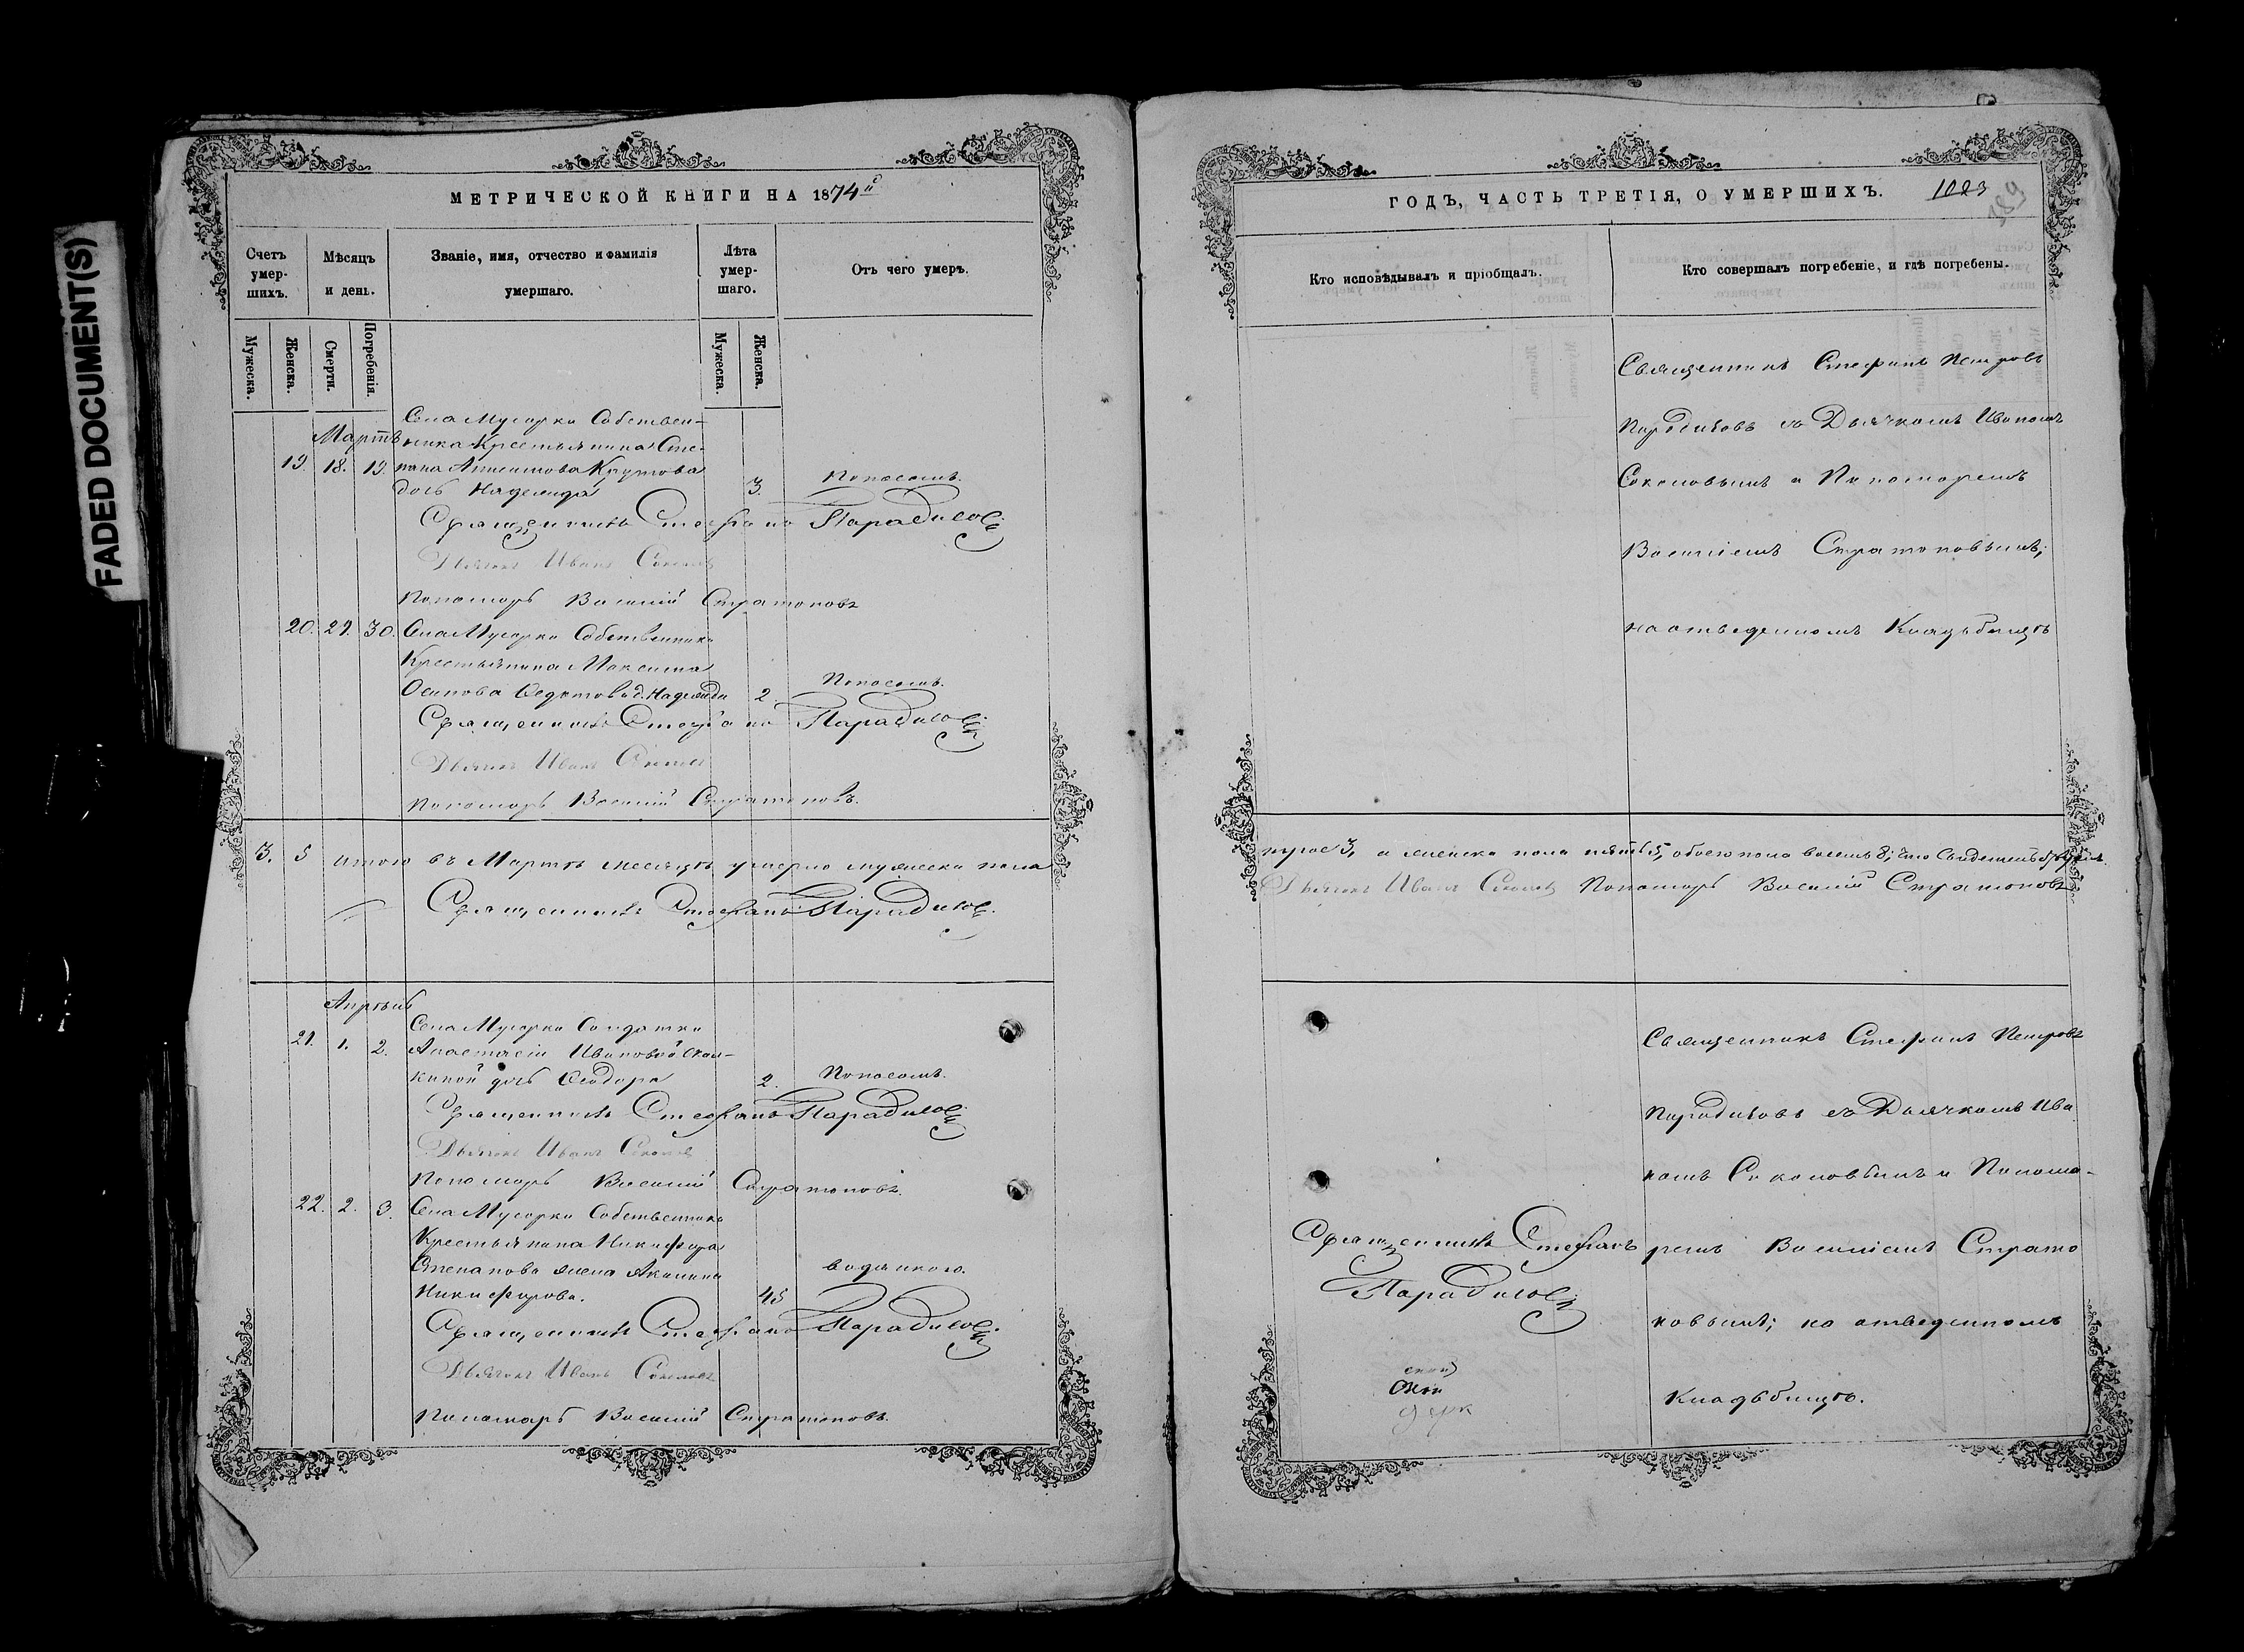 FADED DOCUMENT(S)
МЕТРИЧЕСКОЙ КНИГИ НА 1874й
Счетъ умер-шихъ.
Мѣсяцъ и день.
Званіе, имя, отчество и фамилія умершаго.
Лѣта умер-шаго.
Отъ чего умеръ.
Мужеска.
Женска.
Смерти.
Погребенія.
Мужеска.
Женска.
Мартъ
Села Мусорки Собствен-
ника Крестьянина Сте-
19. 18. 19. пана
дочь Надежда 3. Поносомъ.
Священникъ Стефанъ Парадизовъ
Дьячокъ Иванъ Соколовъ
Пономарь Василій Стратоновъ
20. 29. 30. Села Мусорки Собственника
Крестьянина Максима
Осипова д. Надежда 2. Поносомъ.
Священникъ Стефанъ Парадизовъ
Дьячокъ Иванъ Соколовъ
Пономарь Василій Стратоновъ.
3. 5 итого въ Мартѣ месяцѣ умерло мужеска пола
Священникъ Стефанъ Парадизовъ.
Апрѣль
Села Мусорки Солдатки
21. 1. 2. Анастасіи Ивановой
киной дочь Ѳеодора 2. Поносомъ.
Священникъ Стефанъ Парадизовъ
Дьячокъ Иванъ Соколовъ
Пономарь Василій Стратоновъ.
22. 2. 3. Села Мусорки Собственника
Крестьянина Никифора
Степанова жена Акилина
Никифорова. 45 водяною.
Священникъ Стефанъ Парадизовъ
Дьячокъ Иванъ Соколовъ
Пономарь Василій Стратоновъ.
ГОДЪ, ЧАСТЬ ТРЕТІЯ, О УМЕРШИХЪ. 1023
Кто исповѣдывалъ и пріобщалъ.
Кто совершалъ погребеніе, и гдѣ погребены.
Священникъ Стефанъ Петровъ
Парадизовъ съ Дьячкомъ Иваномъ
Соколовымъ и Пономаремъ
Василіемъ Стратоновымъ;
на отведенномъ Кладьбищѣ
трое 3, а женска пола пять 5, обоего пола восемь 8;
Дьячокъ Иванъ Соколовъ Пономарь Василій Стратоновъ
Священникъ Стефанъ Петровъ
Парадизовъ съ Дьячкомъ Ива
номъ Соколовымъ и Понома-
ремъ Василіемъ Страто
новымъ; на отведенномъ
Кладьбищѣ.
Священникъ Стефанъ
Парадизовъ